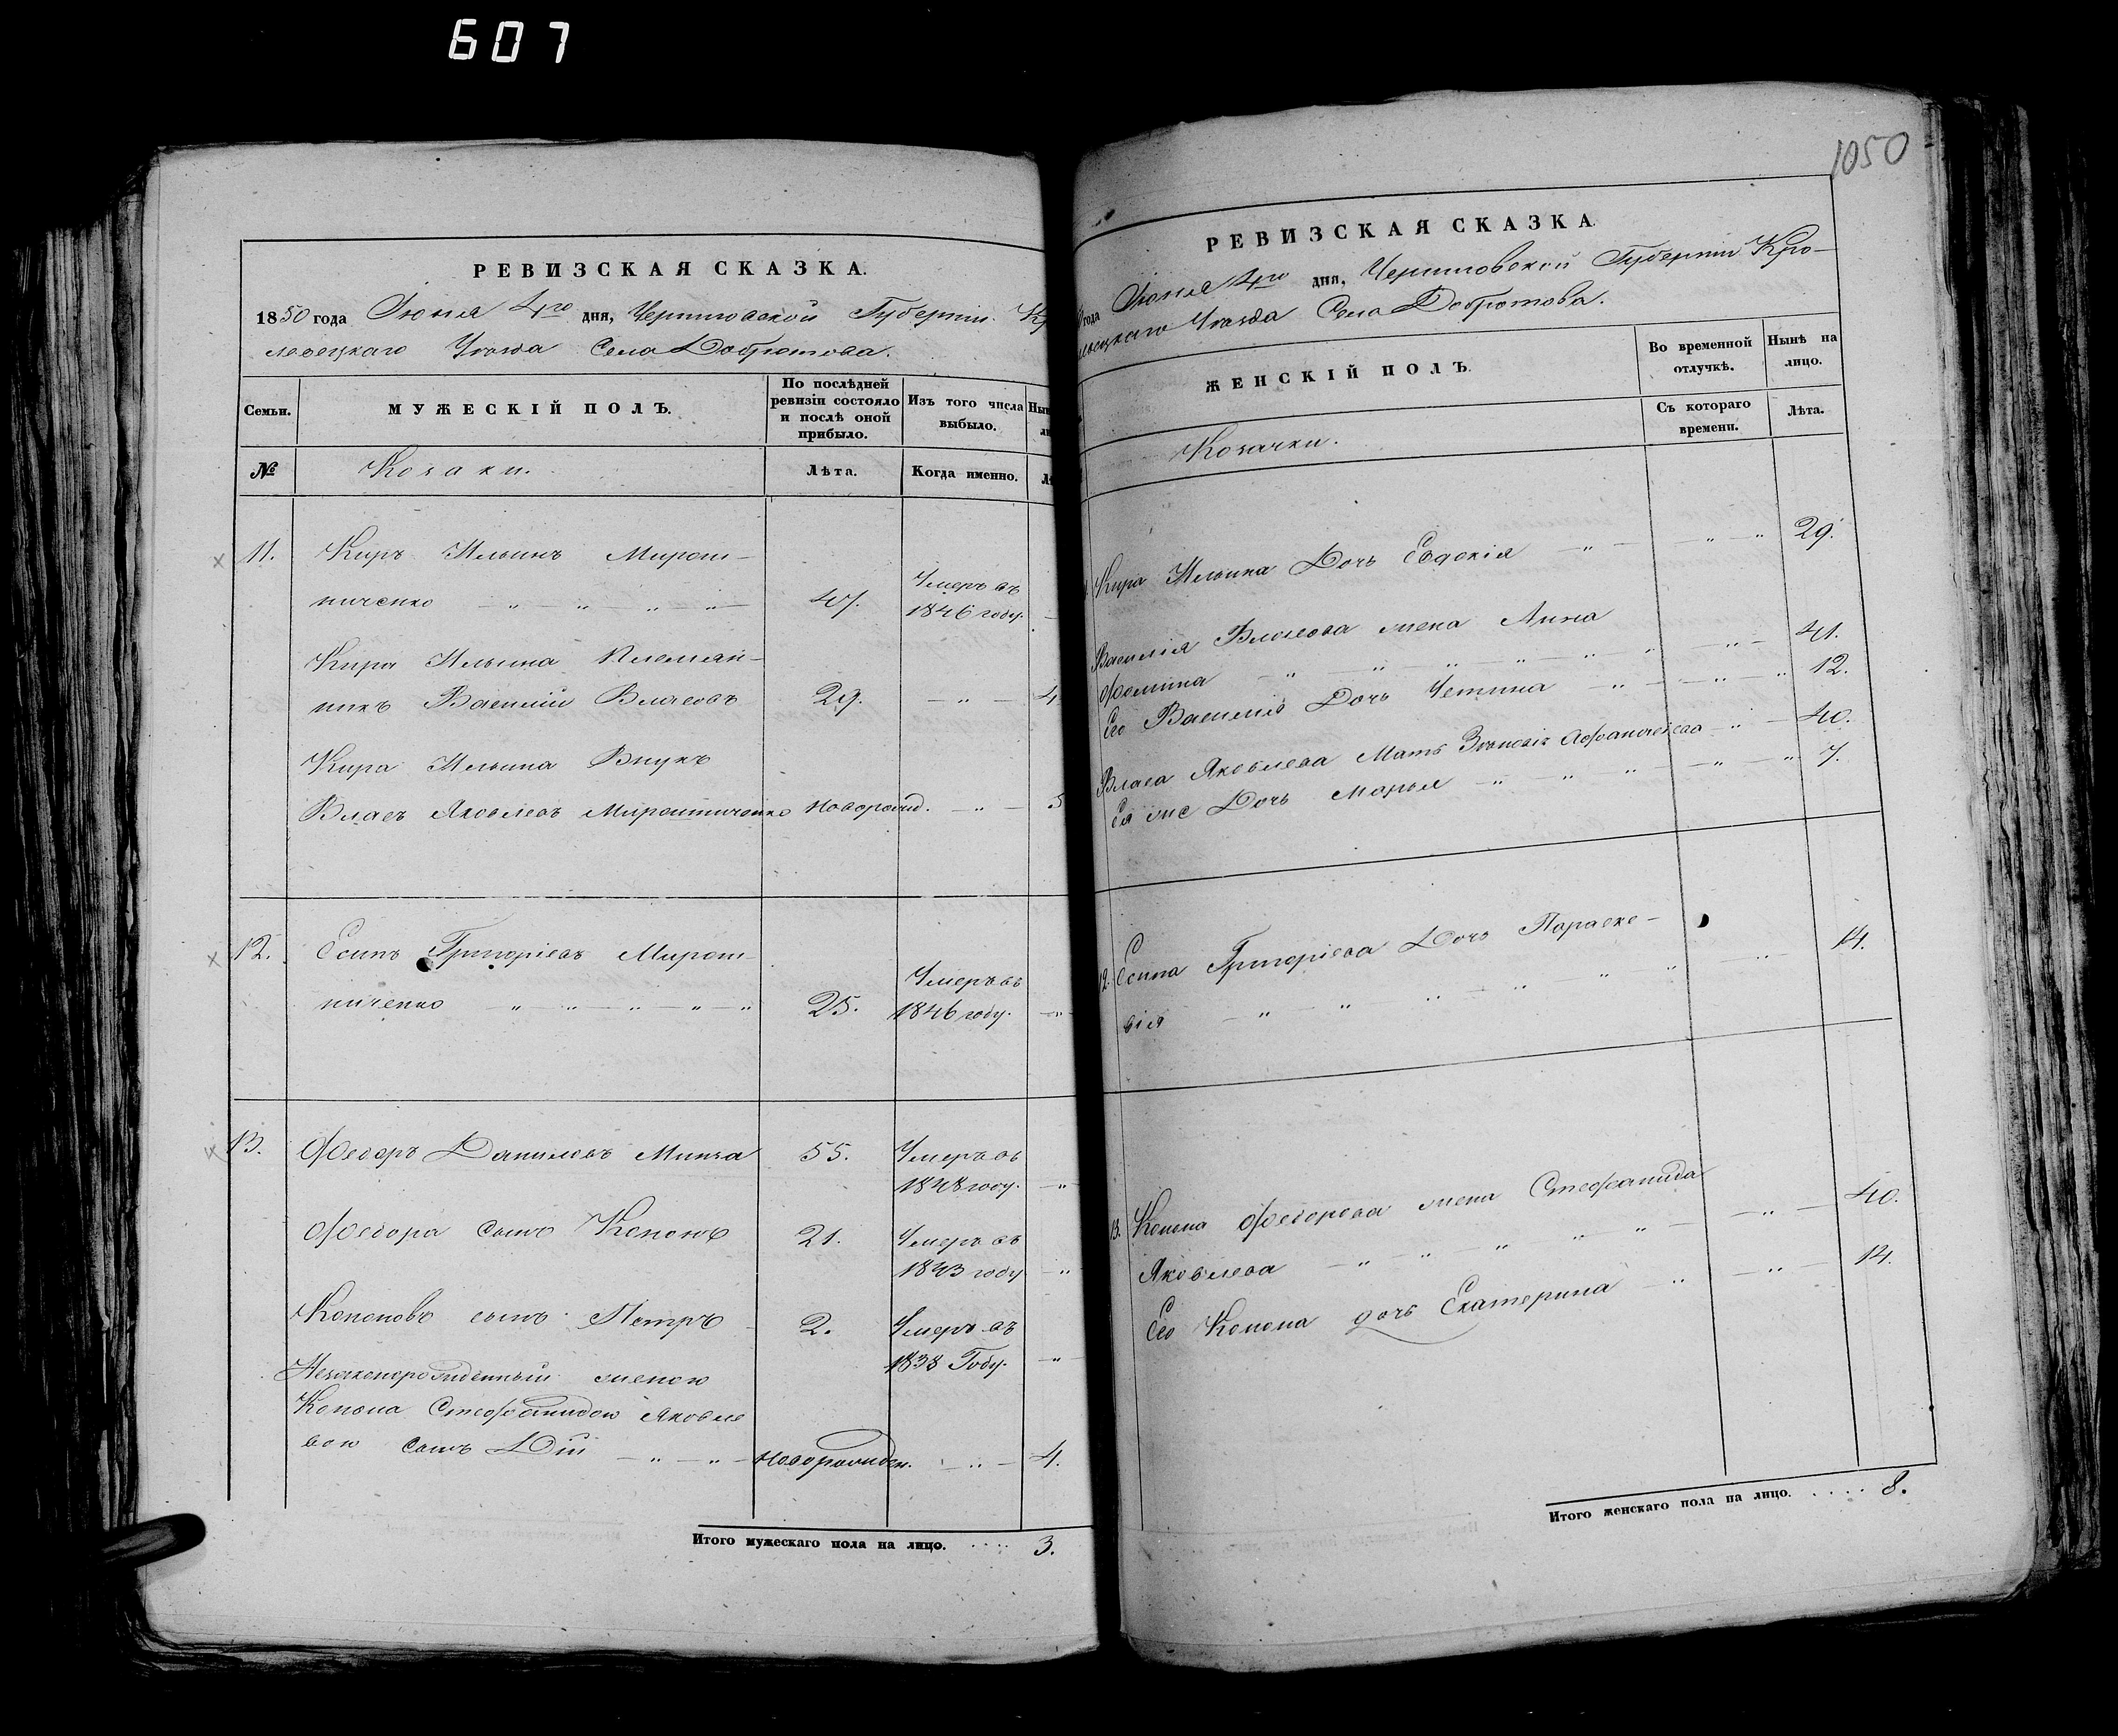 607
РЕВИЗСКАЯ СКАЗКА.
1850 года Іюня 4го дня, Черниговской Губерніи Кр
левецкаго Уезда Села Добротова.
Семьи.
МУЖЕСКІЙ ПОЛЪ.
По послѣдней
ревизіи состояло
и послѣ оной
прибыло.
Изъ того числа
выбыло.
№
Козаки.
Лѣта.
Когда именно.
11. Киръ Ильинъ Мирош-
ниченко 47. Умеръ въ
1846 году.
Кира Ильина Племян-
никъ Василій Власовъ 29. 4
Кира Ильина Внукъ
Власъ Яковлевъ Мирошниченко Новорожд. 5
12. Есипъ Григоріевъ Мирош-
ниченко 25. Умеръ въ
1846 году.
13. Федоръ Даниловъ Минза 55. Умеръ въ
1848 году.
Федора сынъ Кононъ 21. Умеръ въ
1843 году
Кононовъ сынъ Петръ 2. Умеръ въ
1838 Году.
Незаконорожденный женою
Конона Стефанидою Яковле
вою сынъ Дій Новорожден. 4.
Итого мужескаго пола на лицо. .... 3.
1050
РЕВИЗСКАЯ СКАЗКА.
года Іюня 4го дня, Черниговской Губерніи Кро-
левецкаго Уезда Села Добротова.
ЖЕНСКІЙ ПОЛЪ.
Во временной
отлучкѣ.
Нынѣ на
лицо.
Съ котораго
времени.
Лѣта.
Козачки.
Кира Ильина Дочь Евдокія 29.
Василія Власова жена Анна
Фомина 41.
Его Василія Дочь Устина 12.
Власа Яковлева Мать Зѣновія 40.
Ея же Дочь Марья 7.
12. Есипа Григоріева Дочь Параске-
вія 14.
13. Конона Федорова жена Стефанида
Яковлева 40.
Его Конона дочь Екатерина 14.
Итого женскаго пола на лицо. .... 8.